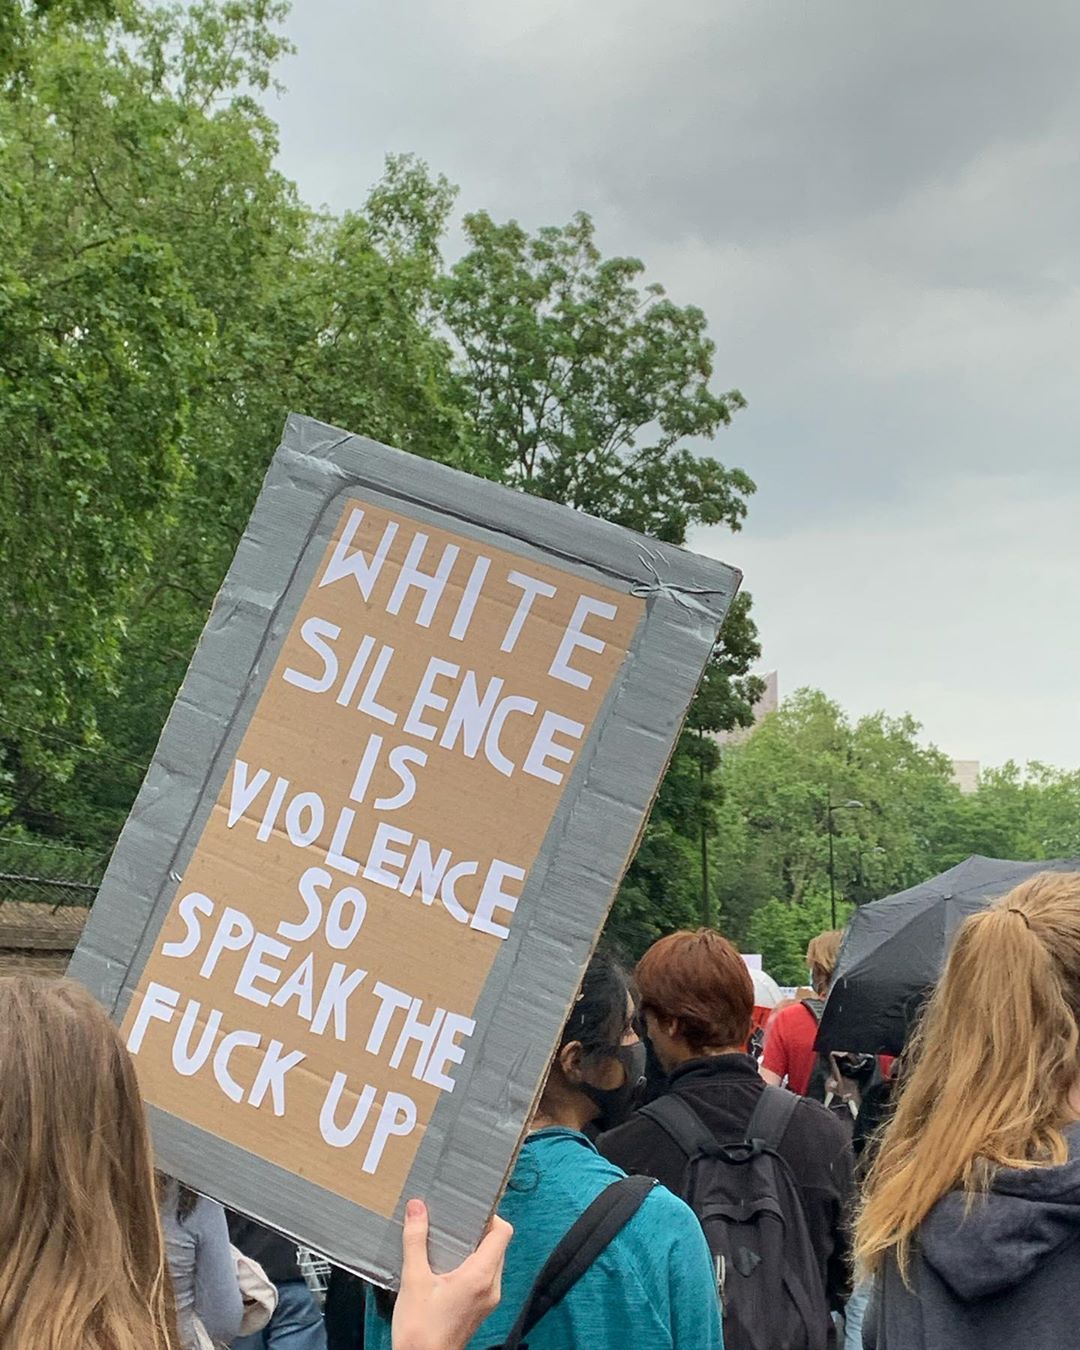 WHITE
SILENCE
IS
VIOLENCE
SO
SPEAK THE
FUCK UP